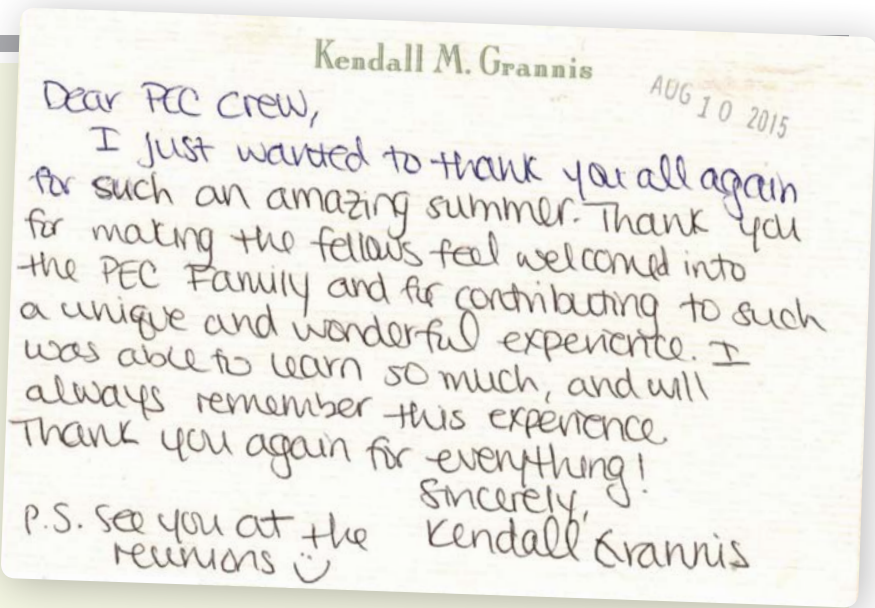 Kendall M. Grannis
AUG 10 2015
Dear PEC Crew,
I just wanted to thank you all again
for such an amazing summer. Thank you
for making the fellows feel welcomed into
the PEC Family and for contributing to such
a unique and wonderful experience. I
was able to learn so much, and will
always remember this experience.
Thank you again for everything!
Sincerely,
Kendall Grannis
P.S. See you at the
reunions ☺